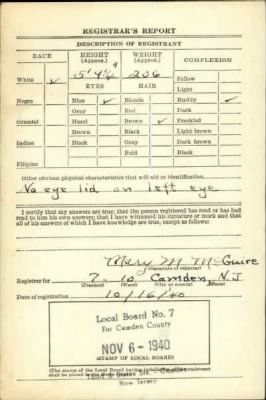 REGISTRAR'S REPORT
DESCRIPTION OF REGISTRANT
RACE HEIGHT (Approx.) WEIGHT (Approx.) COMPLEXION
White ✓ 206 Sallow
EYES HAIR Light
Negro Blue ✓ Blonde Ruddy ✓
Gray Red Dark
Oriental Hazel Brown ✓ Freckled
Brown Black Light brown
Indian Black Gray Dark brown
Bald Black
Filipino
Other obvious physical characteristics that will aid in identification
No eye lid on left eye
I certify that my answers are true; that the person registered has read or has had
read to him his own answers; that I have witnessed his signature or mark and that
all of his answers of which I have knowledge are true, except as follows:
Mary M. McGuire
(Signature of registrar)
Registrar for 7 - 10 Camden, N.J
(Precinct) (Ward) (City or county) (State)
Date of registration 10/16/40
Local Board No. 7
For Camden County
NOV 6 - 1940
(STAMP OF LOCAL BOARD)
(The stamp of the Local Board having jurisdiction of the registrant
shall be placed in the
New Jersey